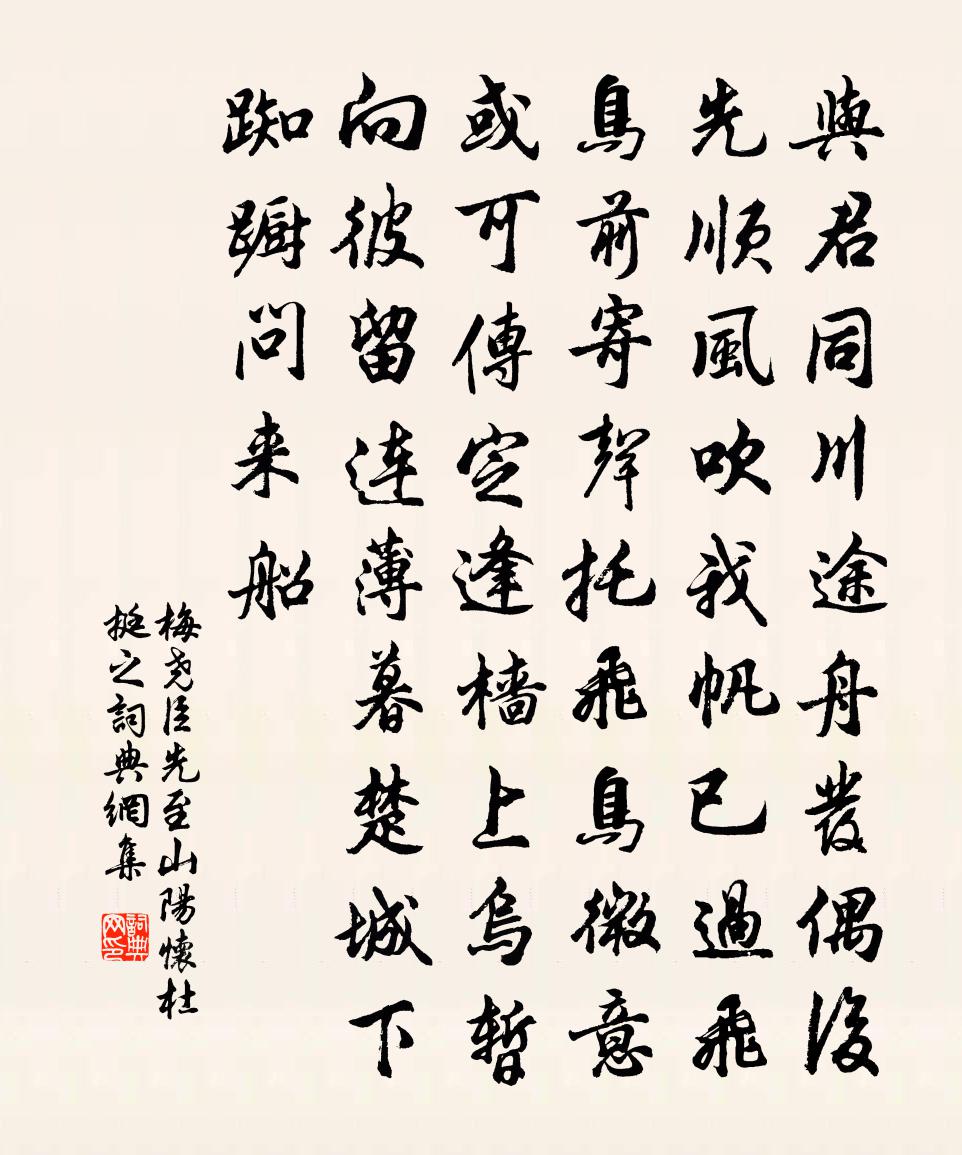 與君同川途舟發偶後
先順風吹我帆已過飛
鳥前寄聲托飛鳥微意
或可傳定逢檣上烏暫
向彼留連薄暮楚城下
踟蹰問来船
梅尧臣先至山陽懷杜
挺之詞典網集
詞典
网印